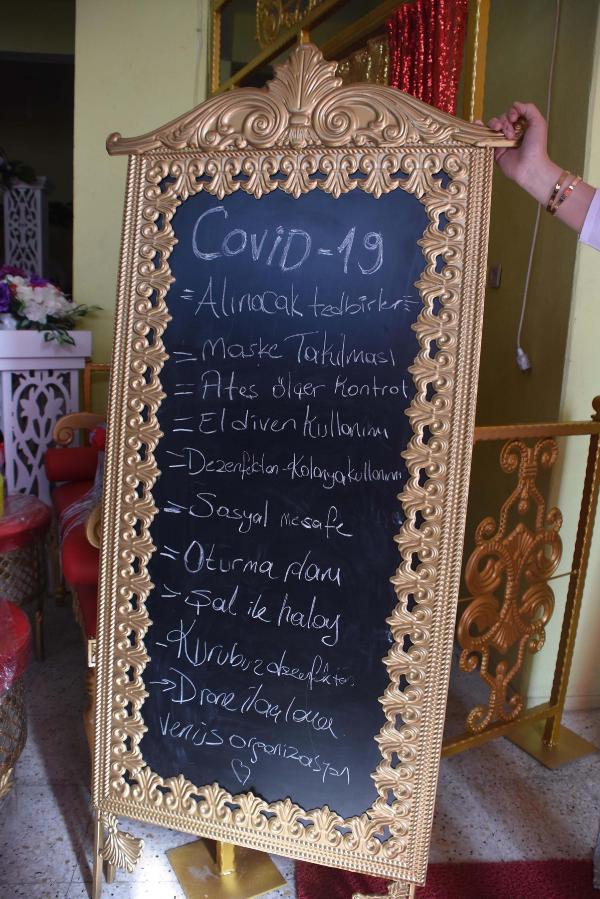 CoviD-19
= Alınacak tedbirler =
= Maske Takılması
= Ateş ölçer Kontrol
= Eldiven Kullanımı
= Dezenfektan-Kolonya kullanımı
= Sosyal mesafe
= Oturma planı
= Şal ile halay
- Kurubuz dezenfekten
=> Drone ilaçlama
Venüs organizasyon
♡